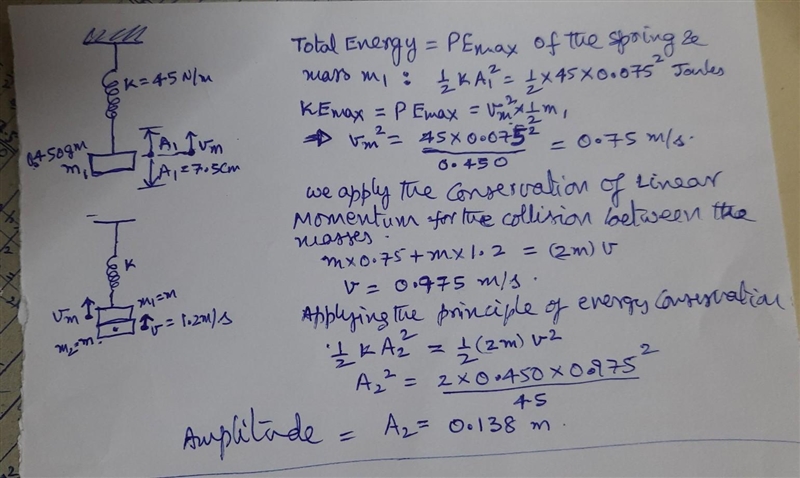 K = 45 N/m
0.450gm
m₁
A₁
vₘ
A₁ = 7.5cm
K
vₘ
m₁ = m
m₂ = m
v = 1.2m/s
Total Energy = PEmax of the spring &
mass m₁ : ½ K A₁² = ½ × 45 × 0.075² Joules
KEmax = PEmax = vₘ² × ½ m₁
⇒ vₘ² = 45 × 0.075² / 0.450 = 0.75 m/s.
we apply the Conservation of Linear
Momentum for the collision between the
masses.
m × 0.75 + m × 1.2 = (2m) v
v = 0.975 m/s.
Applying the principle of energy conservation
½ k A₂² = ½ (2m) v²
A₂² = 2 × 0.450 × 0.975² / 45
Amplitude = A₂ = 0.138 m.